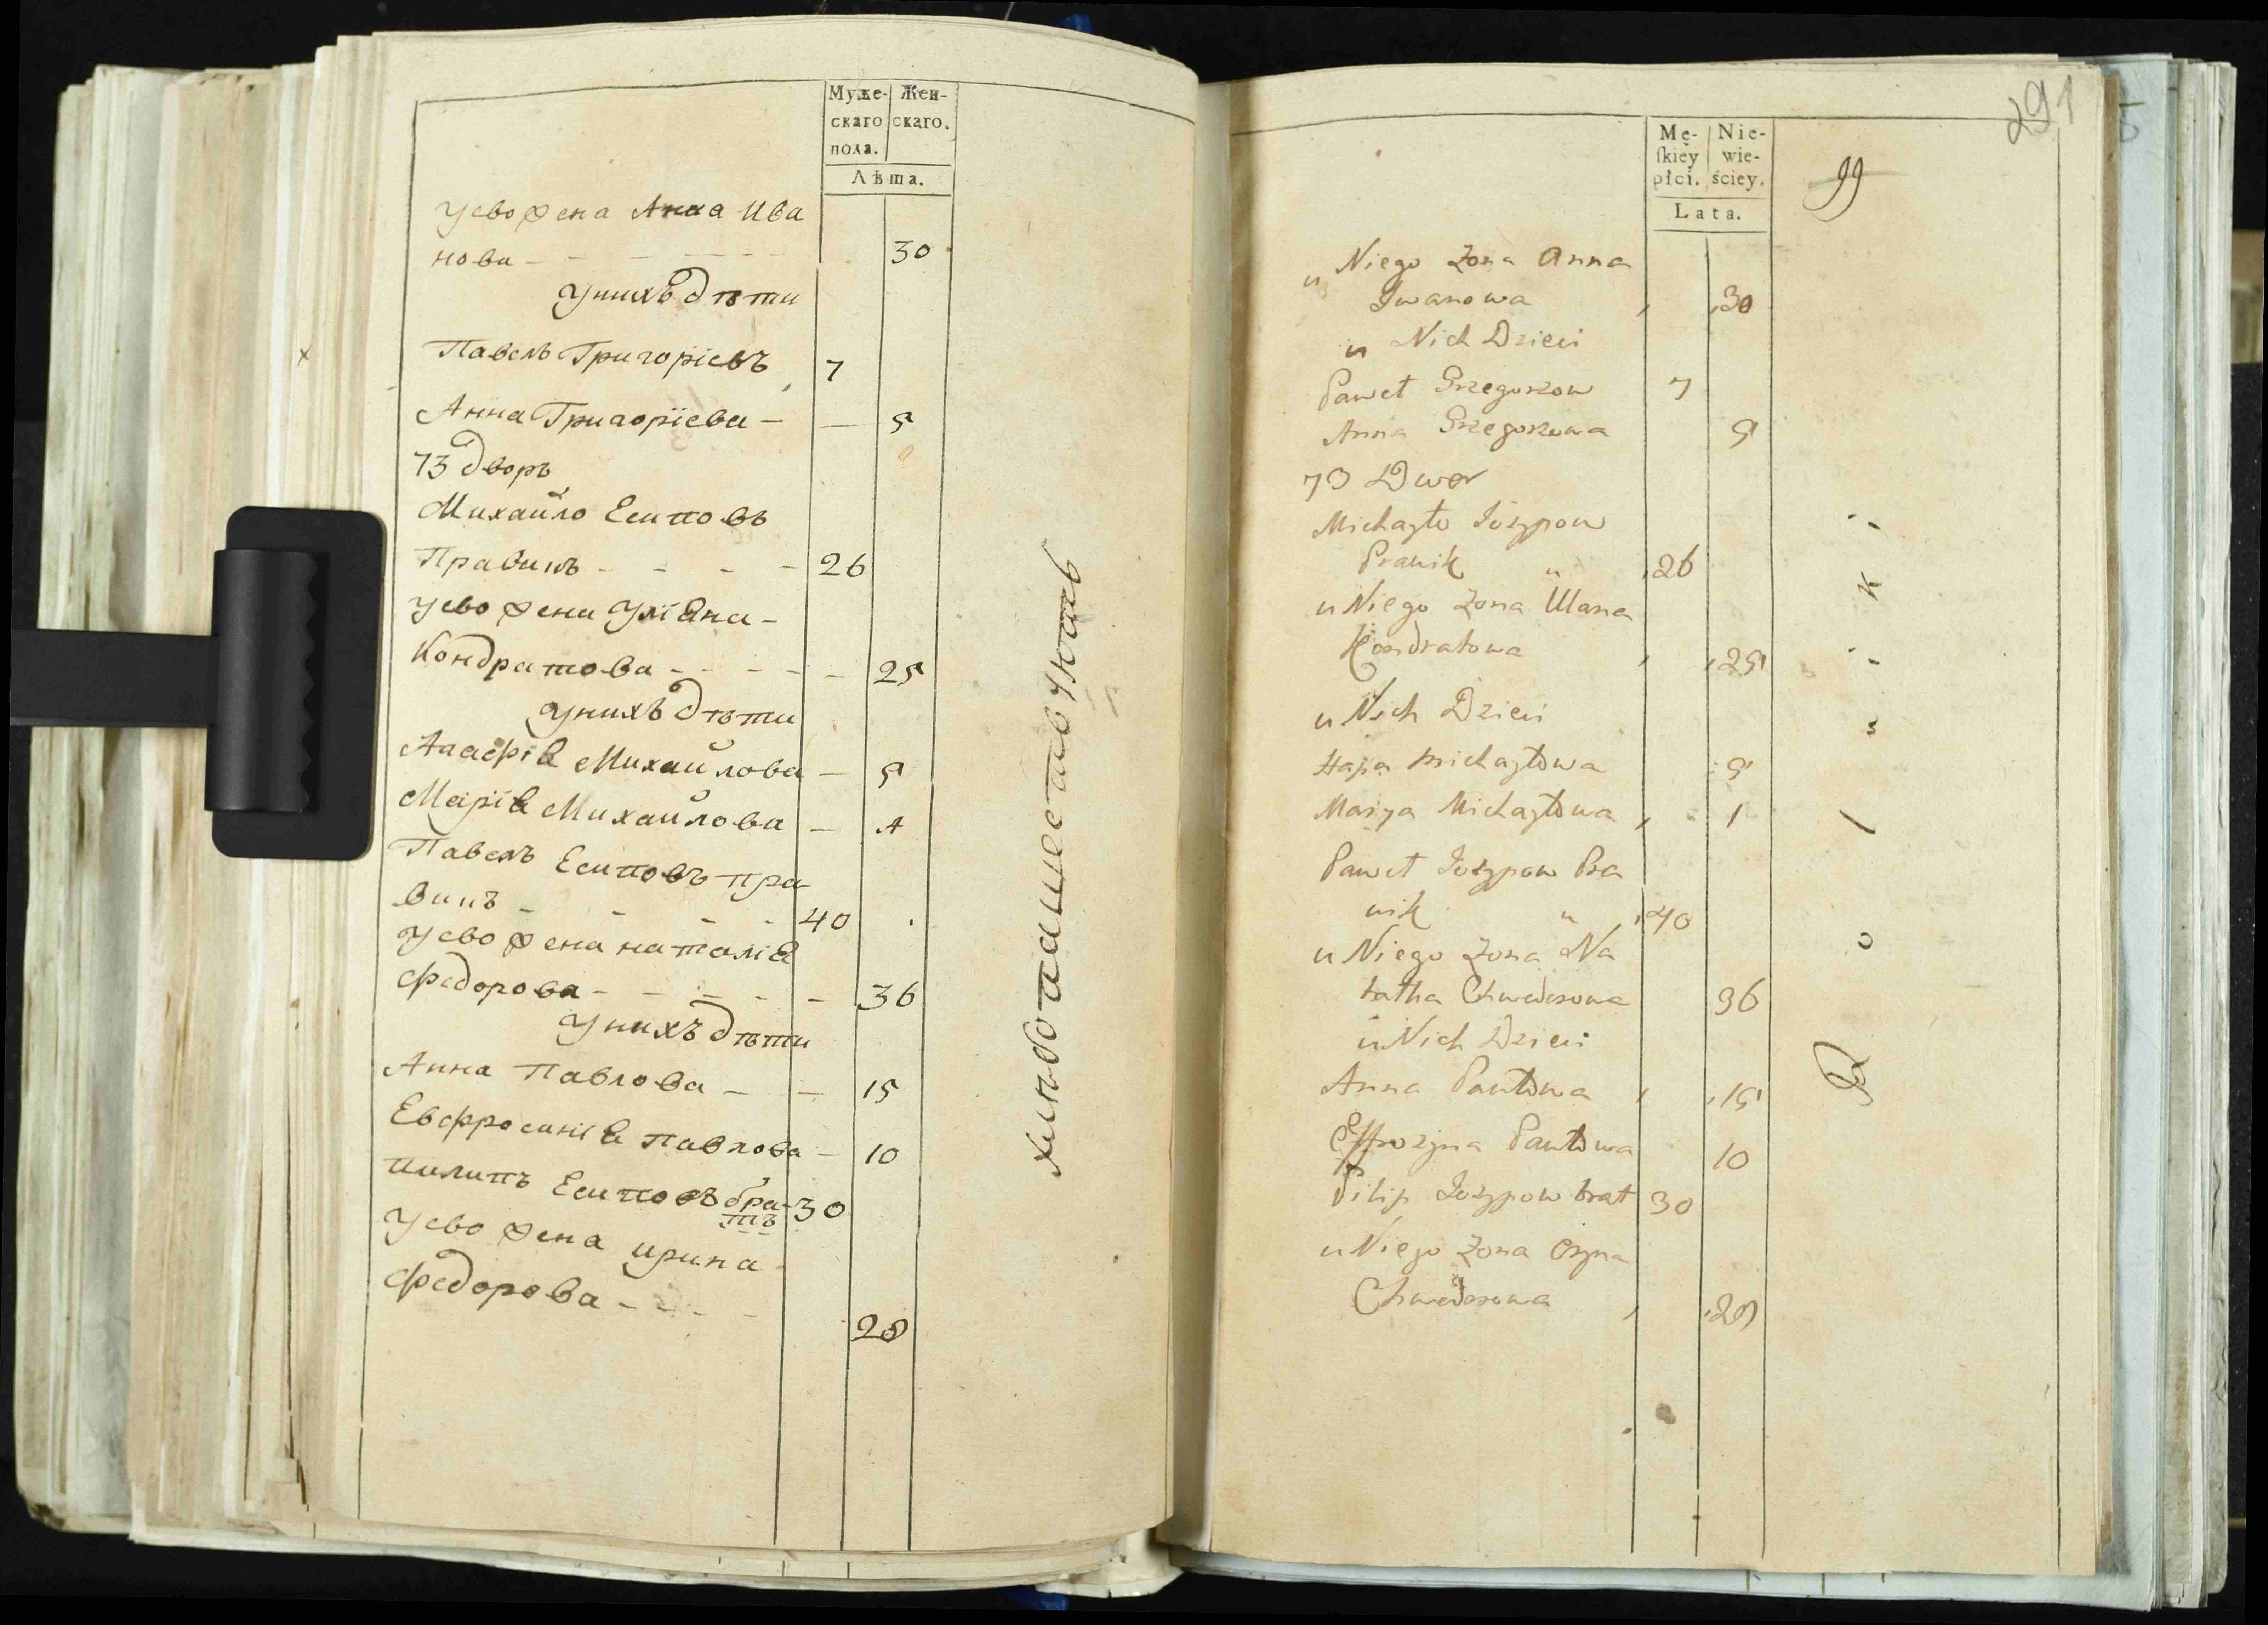 Муже-
скаго
пола.
Жен-
скаго.
Лѣта.
Уево жена Анна Ива
нова - - - - - 30
Унихъ дѣти
Павелъ Григоріевъ 7
Анна Григоріева - — 5
73 дворъ
Михайло Есиповъ
Правикъ - - - - 26
Уево жена Уліяна -
Кондратова - - - - - 25
Унихъ дѣти
Агафія Михайлова - 5
Марія Михайлова - 1
Павелъ Есиповъ пра
викъ - - - - 40
Уево жена наталія
Федорова - - - - - 36
Унихъ дѣти
Анна Павлова - - 15
Евфросинія Павлова - 10
пилипъ Есиповъ бра- 30
тъ
Уево жена ирина
Федорова - - - -
28
291
99
Mę-
ſkiey
płci.
Nie-
wie-
ściey.
Lata.
u Niego Zona Anna
Iwanowa 30
u Nich Dzieci
Paweł Grzegorzow 7
Anna Grzegorzowa 5
73 Dwor
Michayło Jozypow
Prawik " 26
u Niego Zona Ulana
Kondratowa 25
u Nich Dzieci
Hapa Michayłowa 5
Marya Michayłowa 1
Paweł Jozypow Pra
wik " 40
u Niego Zona Na
talka Chwedorowa 36
u Nich Dzieci
Anna Pawłowa 15
Effrozyna Pawłowa 10
Pilip Jozypow brat 30
u Niego Zona Oryna
Chwedorowa 28